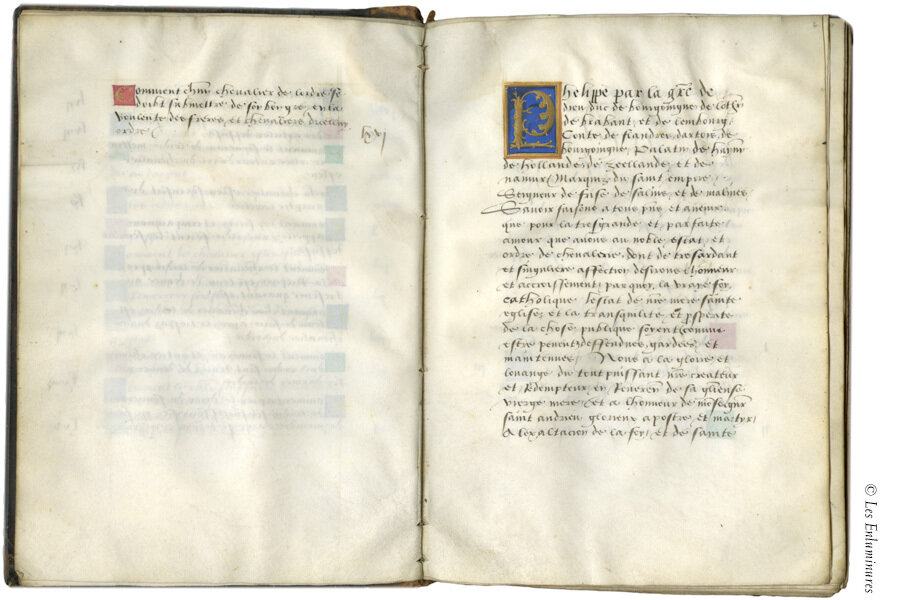 Comment chun chevalier de lordre se
doibt submettre de son
voulente des freres et chevaliers dicelluy
ordre
lxvj
Phelippe par la grce de
dieu duc de bourgoingne de lothr
de brabant et de lembourg
Conte de flandres dartois de
bourgoingne Palatin de haynn
de hollande de zeellande et de
namur Marquiz du saint empire
Seigneur de frise de salins et de malines
Savoir faisons a tous pns et advenir
que pour la tresgrande et parfaite
amour que avons au noble estat et
ordre de chevalerie dont de tresardant
et singuliere affection desirons lhonneur
et accroissement parquoy la vraye foy
catholique lestat de nre mere sainte
eglise et la tranquilite et psperite
de la chose publique soyent comme
estre peuvent deffendues gardees et
maintenues Nous a la gloire et
louange du tout puissant nre createur
et Redempteur en Reveren de sa glieuse
vierge mere et a lhonneur de monseignr
saint andrieu glorieux apostre et martyr
A lexaltacion de la foy et de sainte
© Les Enluminures